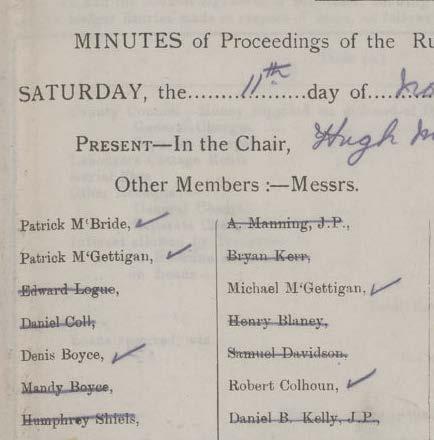 MINUTES of Proceedings of the Ru
SATURDAY, the........11th........day of....
PRESENT—In the Chair, Hugh
Other Members :—Messrs.
Patrick M‘Bride,
Patrick M‘Gettigan,
Edward Logue,
Daniel Coll,
Denis Boyce,
Mandy Boyce,
Humphrey Shiels,
A. Manning, J.P.,
Bryan Kerr,
Michael M‘Gettigan,
Henry Blaney,
Samuel Davidson.
Robert Colhoun,
Daniel B. Kelly, J.P.,